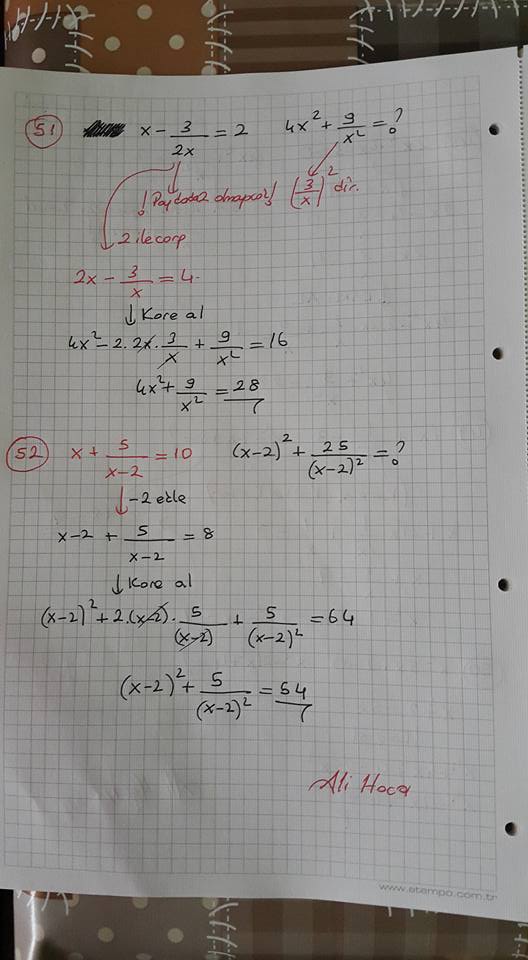 51 x - 3/2x = 2 4x² + 9/x² = ?
! Paydada 2 olmayacak! (3/x)² dir.
2 ile çarp
2x - 3/x = 4
↓ Kare al
4x² - 2.2x.3/x + 9/x² = 16
4x² + 9/x² = 28
52 x + 5/(x-2) = 10 (x-2)² + 25/(x-2)² = ?
↓ -2 ekle
x-2 + 5/(x-2) = 8
↓ Kare al
(x-2)² + 2.(x-2).5/(x-2) + 5/(x-2)² = 64
(x-2)² + 5/(x-2)² = 54
Ali Hoca
www.etempo.com.tr